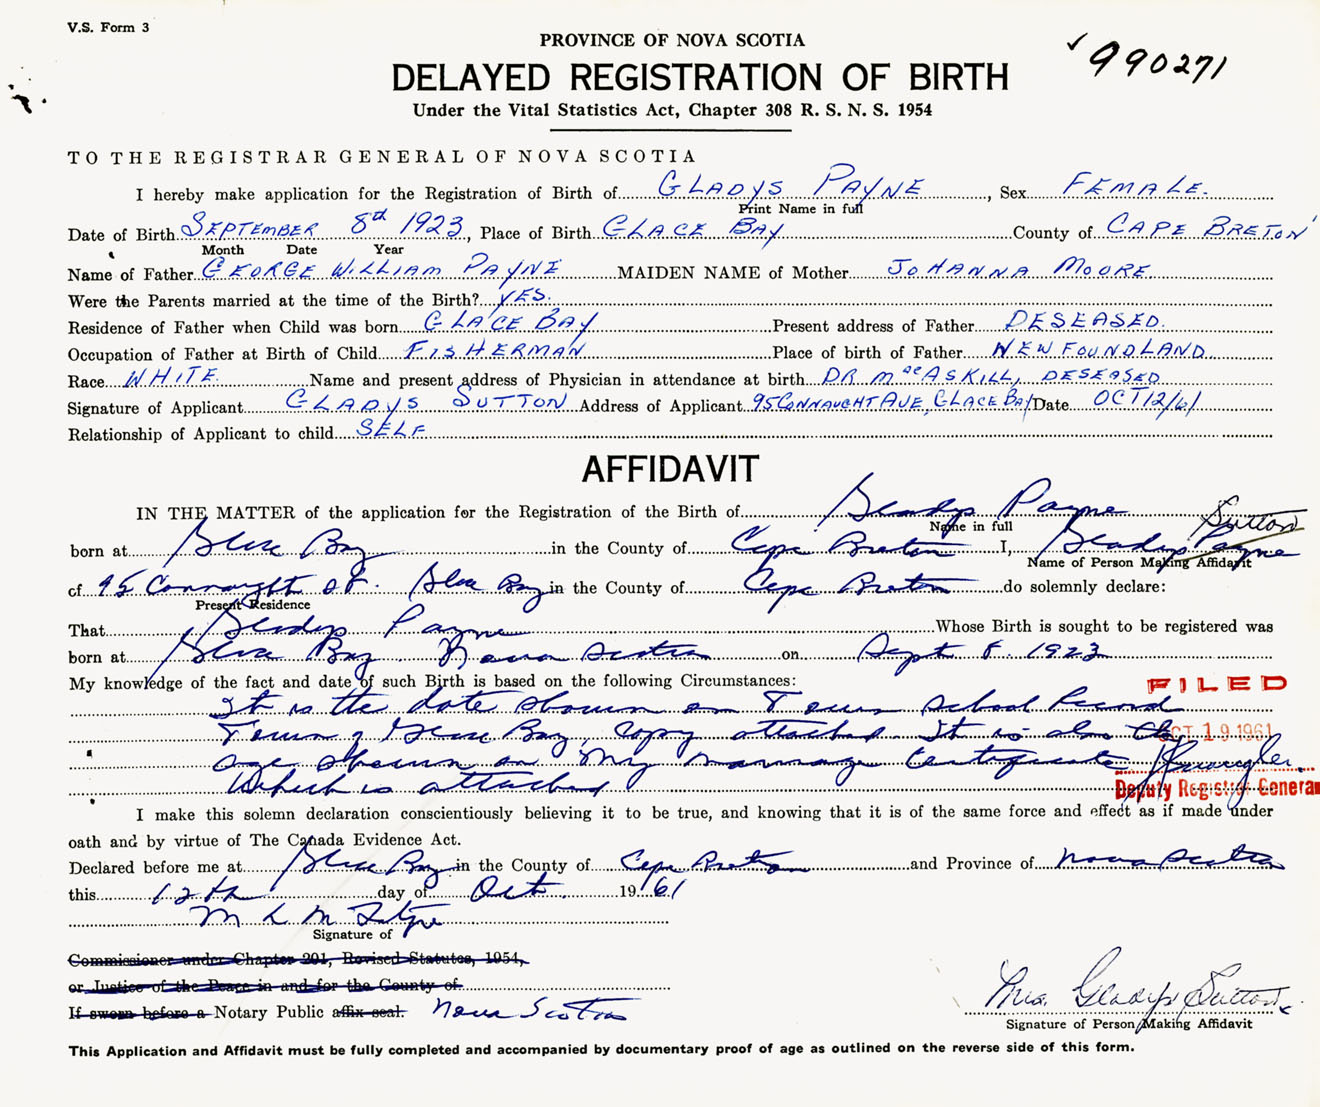 V.S. Form 3
PROVINCE OF NOVA SCOTIA
990271
DELAYED REGISTRATION OF BIRTH
Under the Vital Statistics Act, Chapter 308 R. S. N. S. 1954
TO THE REGISTRAR GENERAL OF NOVA SCOTIA
I hereby make application for the Registration of Birth of GLADYS PAYNE, Sex FEMALE.
Print Name in full
Date of Birth SEPTEMBER 8th 1923, Place of Birth GLACE BAY County of CAPE BRETON
Month Date Year
Name of Father GEORGE WILLIAM PAYNE MAIDEN NAME of Mother JOHANNA MOORE
Were the Parents married at the time of the Birth? YES.
Residence of Father when Child was born GLACE BAY Present address of Father DESEASED.
Occupation of Father at Birth of Child FISHERMAN Place of birth of Father NEWFOUNDLAND
Race WHITE. Name and present address of Physician in attendance at birth DR MacASKILL, DESEASED
Signature of Applicant GLADYS SUTTON Address of Applicant 95 CONNAUGHT AVE, GLACE BAY Date OCT 12/61
Relationship of Applicant to child SELF
AFFIDAVIT
IN THE MATTER of the application for the Registration of the Birth of Gladys Payne
Name in full
Sutton
born at Glace Bay in the County of Cape Breton I, Gladys Payne
Name of Person Making Affidavit
of 95 Connaught St. Glace Bay in the County of Cape Breton do solemnly declare:
Present Residence
That Gladys Payne Whose Birth is sought to be registered was
born at Glace Bay Nova Scotia on Sept 8. 1923
My knowledge of the fact and date of such Birth is based on the following Circumstances:
FILED
It is the date shown on Town School Record
Town of Glace Bay, Copy attached. It is also the
OCT 19 1961
age shown on My marriage Certificate
Which is attached
Deputy Registrar General
I make this solemn declaration conscientiously believing it to be true, and knowing that it is of the same force and effect as if made under
oath and by virtue of The Canada Evidence Act.
Declared before me at Glace Bay in the County of Cape Breton and Province of Nova Scotia
this 12th day of Oct. 1961
Signature of
Commissioner under Chapter 201, Revised Statutes, 1954,
or Justice of the Peace in and for the County of
If sworn before a Notary Public affix seal. Nova Scotia
Mrs. Gladys Sutton
Signature of Person Making Affidavit
This Application and Affidavit must be fully completed and accompanied by documentary proof of age as outlined on the reverse side of this form.